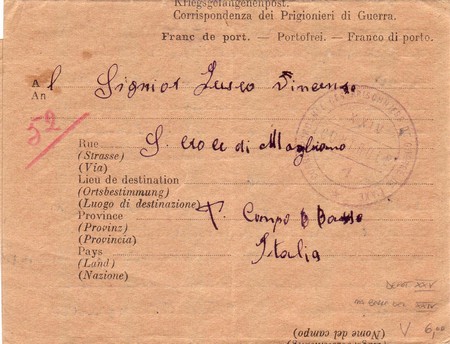 Kriegsgefangenenpost.
Corrispondenza dei Prigionieri di Guerra.
Franc de port. — Portofrei. — Franco di porto.
A l Signior Vincenso
An
52
Rue S. croce di Magliano
(Strasse)
(Via)
Lieu de destination
(Ortsbestimmung)
(Luogo di destinazione)
Province Campo Basso
(Provinz)
(Provincia)
Pays Italia
(Land)
(Nazione)
XXIV
V 6,00
(Nome del campo)